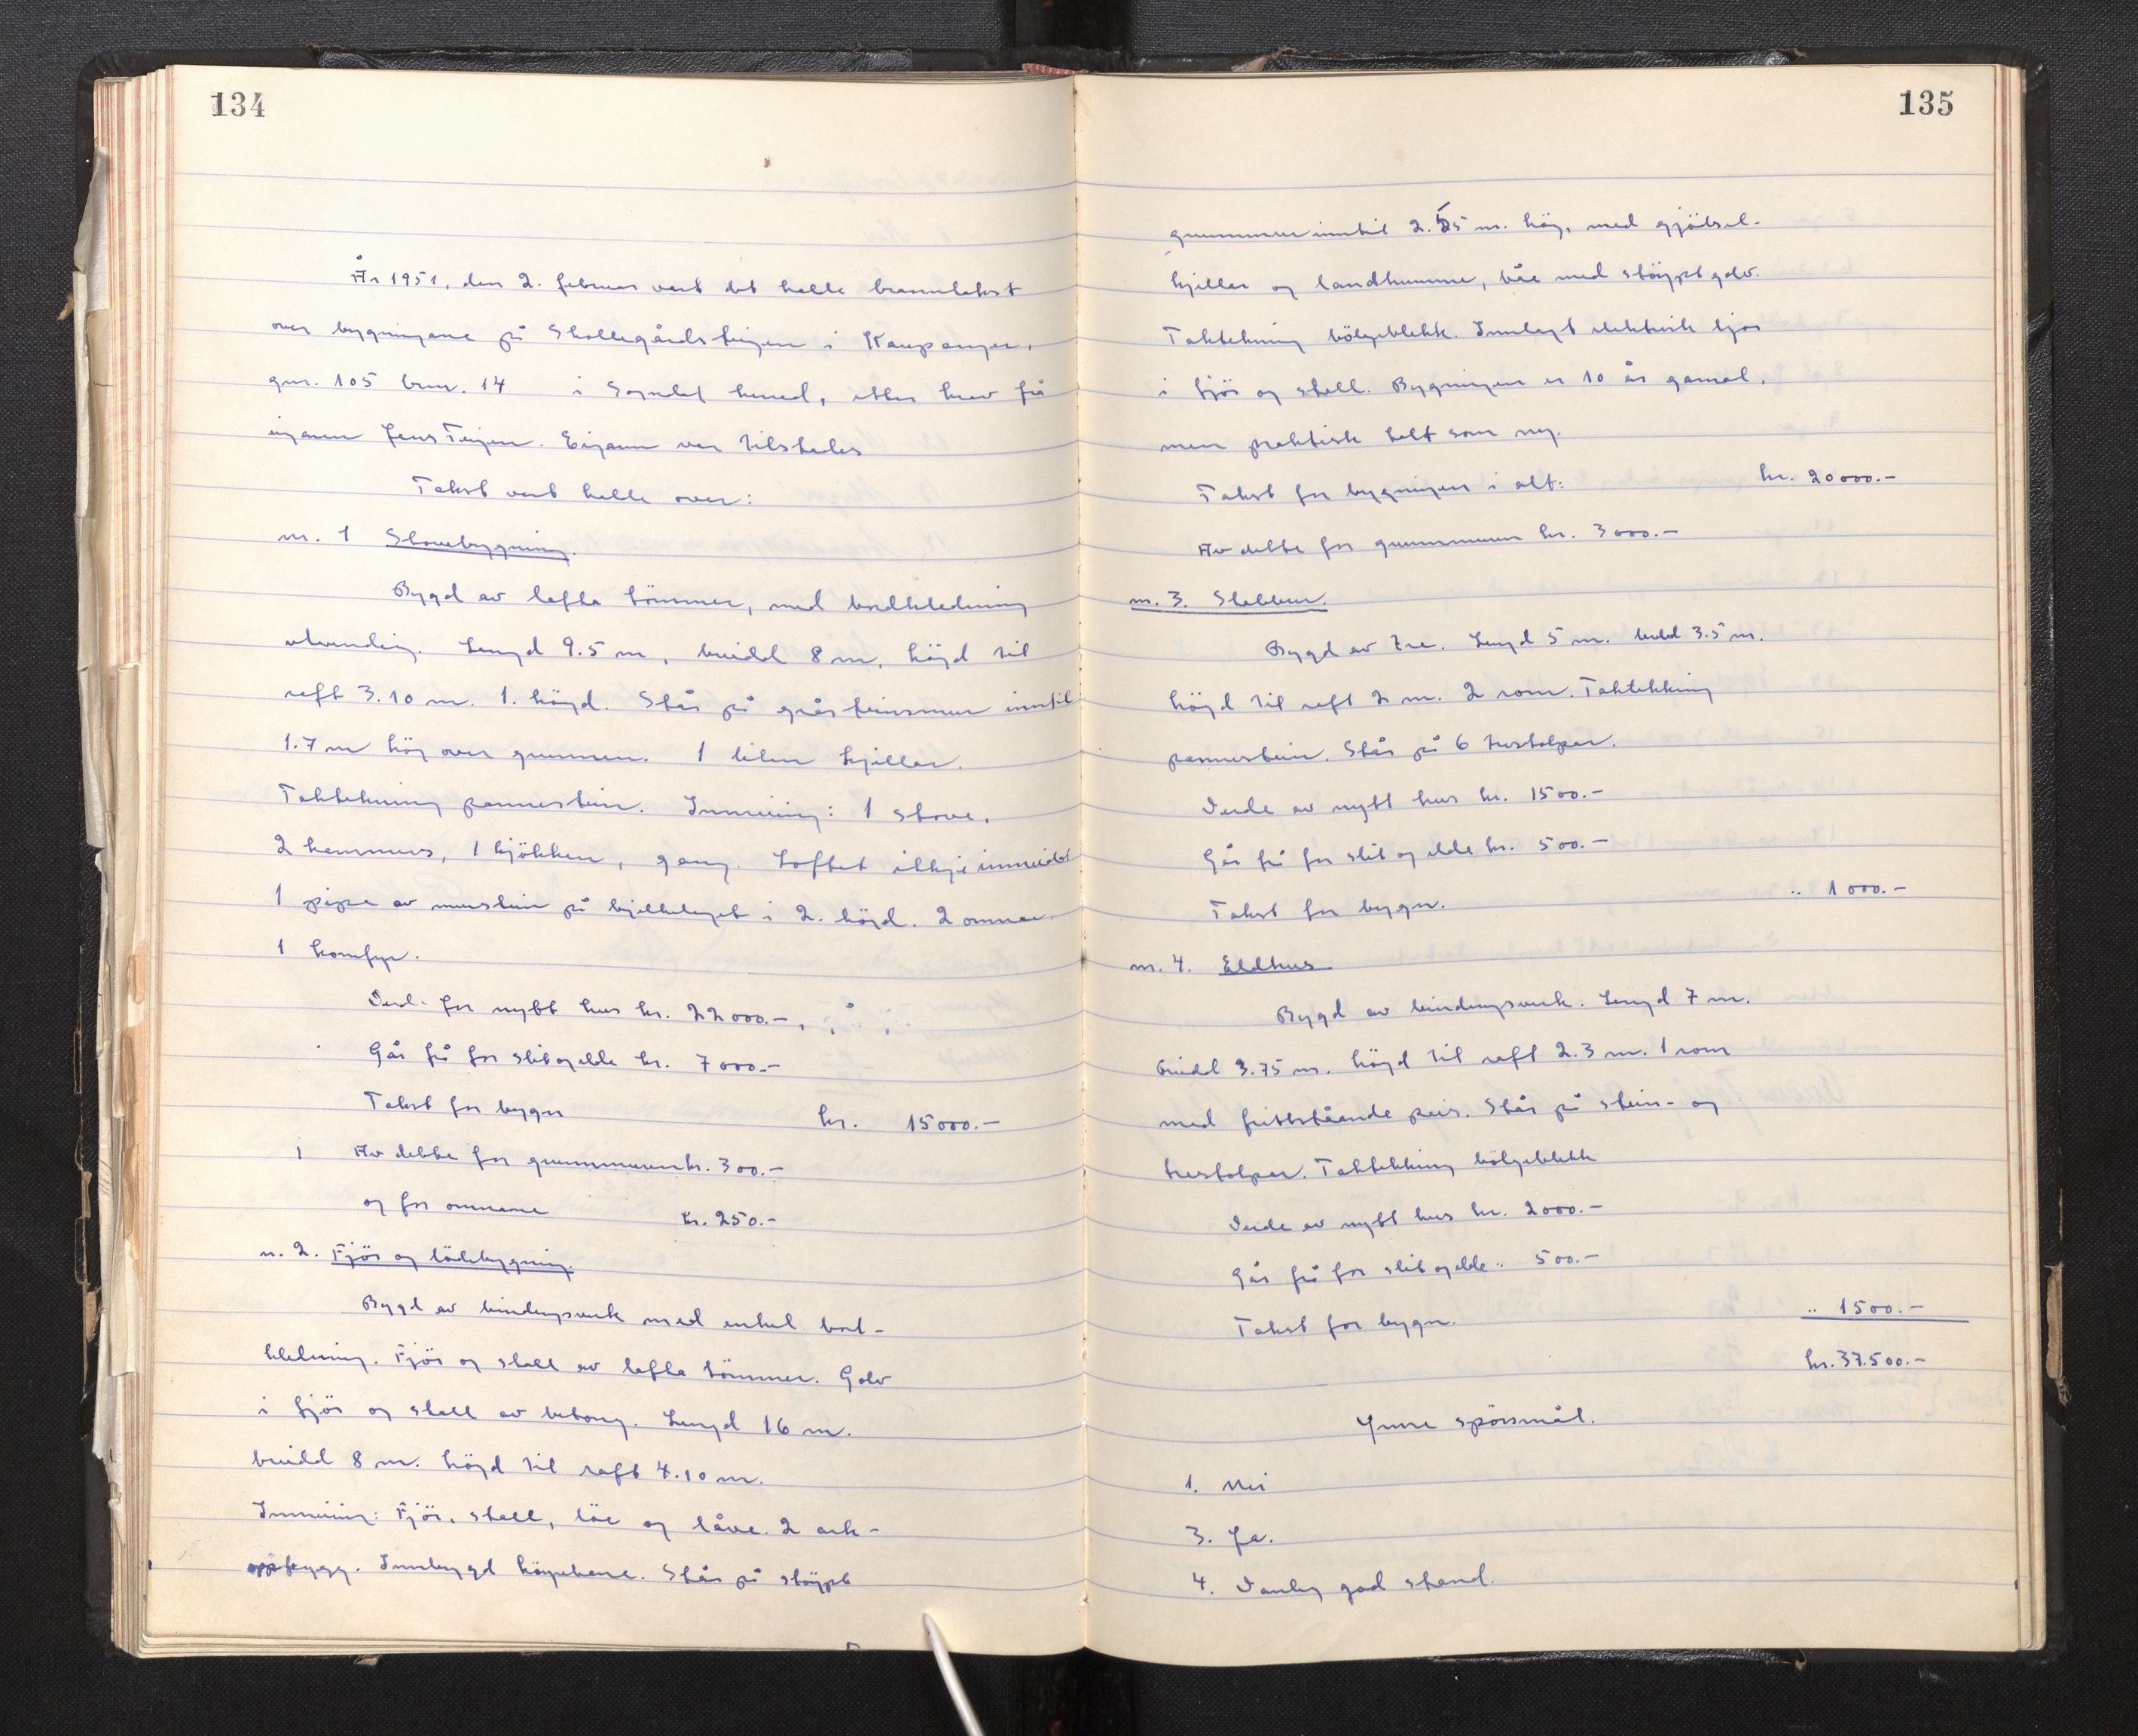 134
År 1951, den 2. februar vart det halde branntakst
over bygningane på Skallegårdsteigen i Kaupanger,
gnr. 105 bnr. 14 i Sogndal herad, etter krav frå
eigaren Jens Teigen. Eigaren var tilstades
Takst vart halde over:
nr. 1 Stovebygning.
Bygd av lafta tömmer, med bordkledning
utvendig. Lengd 9.5 m, breidd 8 m, högd til
raft 3.10 m. 1. högd. Står på gråsteinsmur inntil
1.7 m hög over grunnen. 1 liten kjellar.
Taktekning pannestein. Innreiing: 1 stove,
2 kammers, 1 kjökken, gang. Loftet ikkje innreidd
1 pipe av murstein på bjelkelaget i 2. högd. 2 omnar.
1 komfyr.
Verd. for nytt hus kr. 22000.-
Går frå for slit og elde kr. 7000.-
Takst for bygn kr. 15000.-
Av dette for grunnmuren kr. 300.-
og for omnane kr. 250.-
n. 2. Fjös og lödebygning.
Bygd av bindingsverk med enkel bord-
kledning. Fjös og stall av lafta tömmer. Golv
i fjös og stall av betong. Lengd 16 m.
breidd 8 m. högd til raft 4.10 m.
Innreiing: Fjös, stall, löe og låve. 2 ark-
oppbygg. Innbygd höyebane. Står på stöypt
135
grunnmur inntil 2.55 m. hög, med gjödsel-
kjellar og landkumme, båe med stöypt golv.
Taktekning bölgeblekk. Innlagt elektrisk ljos
i fjös og stall. Bygningen er 10 år gamal,
men praktisk talt som ny.
Takst for bygningen i alt: kr. 20000.-
Av dette for grunnmuren kr. 3000.-
nr. 3. Stabbur.
Bygd av tre. Lengd 5 m. breidd 3.5 m.
högd til raft 2 m. 2 rom. Taktekking
pannestein. Står på 6 trestolpar.
Verde av nytt hus kr. 1500.-
Går frå for slit og elde kr. 500.-
Takst for bygn. " 1000.-
nr. 4. Eldhus
Bygd av bindingsverk. Lengd 7 m.
breidd 3.75 m. högd til raft 2.3 m. 1 rom
med frittståande peis. Står på stein- og
trestolpar. Taktekking bölgeblekk
Verde av nytt hus kr. 2000.-
Går frå for slit og elde " 500.-
Takst for bygn. " 1500.-
kr. 37.500.-
Ymse spörsmål.
1. Nei
3. Ja.
4. Vanleg god stand.